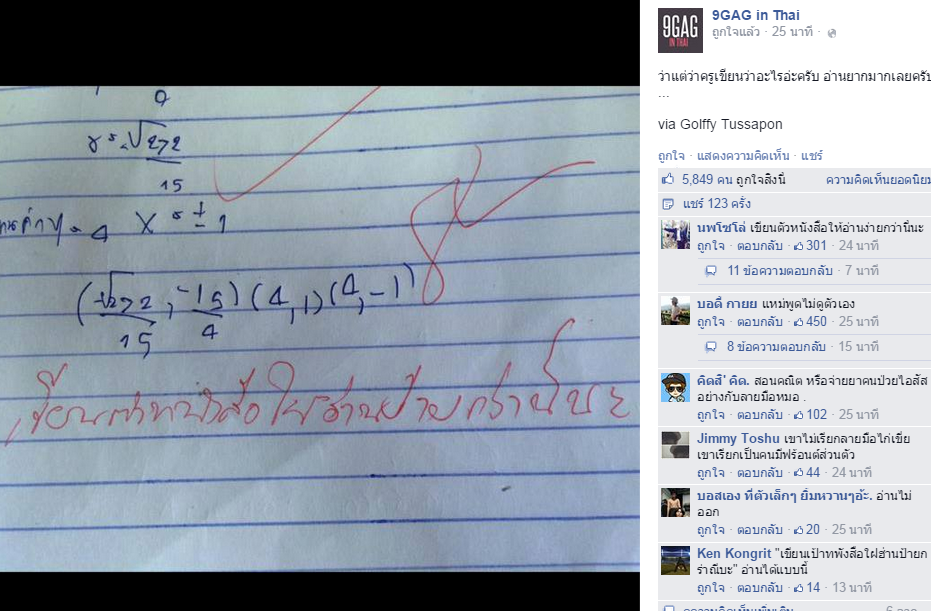 0
x = √272
15
แทนค่า y = 4 X = ± 1
(√272/15, -15/4) (4, 1) (4, -1)
เขียนตัวหนังสือให้อ่านง่ายกว่านี้นะ
9GAG
IN THAI
9GAG in Thai
ถูกใจแล้ว · 25 นาที ·
ว่าแต่ว่าครูเขียนว่าอะไรอ่ะครับ อ่านยากมากเลยครับ
...
via Golffy Tussapon
ถูกใจ · แสดงความคิดเห็น · แชร์
5,849 คน ถูกใจสิ่งนี้ ความคิดเห็นยอดนิยม
แชร์ 123 ครั้ง
นพโซโล่ เขียนตัวหนังสือให้อ่านง่ายกว่านี้นะ
ถูกใจ · ตอบกลับ · 301 · 24 นาที
11 ข้อความตอบกลับ · 7 นาที
บอดี้ กายย แหม่พูดไม่ดูตัวเอง
ถูกใจ · ตอบกลับ · 450 · 25 นาที
8 ข้อความตอบกลับ · 15 นาที
คิดส์' คิด. สอนคณิต หรือจ่ายยาคนป่วยไอสัส
อย่างกับลายมือหมอ .
ถูกใจ · ตอบกลับ · 102 · 25 นาที
Jimmy Toshu เขาไม่เรียกลายมือไก่เขี่ย
เขาเรียกเป็นคนมีฟร้อนต์ส่วนตัว
ถูกใจ · ตอบกลับ · 44 · 24 นาที
บอสเอง ที่ตัวเล็กๆ ยิ้มหวานๆอ้ะ. อ่านไม่
ออก
ถูกใจ · ตอบกลับ · 20 · 25 นาที
Ken Kongrit "เขียนเป้าทพังสือใฝฮ่านป้ายก
ร่าณีบะ" อ่านได้แบบนี้
ถูกใจ · ตอบกลับ · 14 · 13 นาที